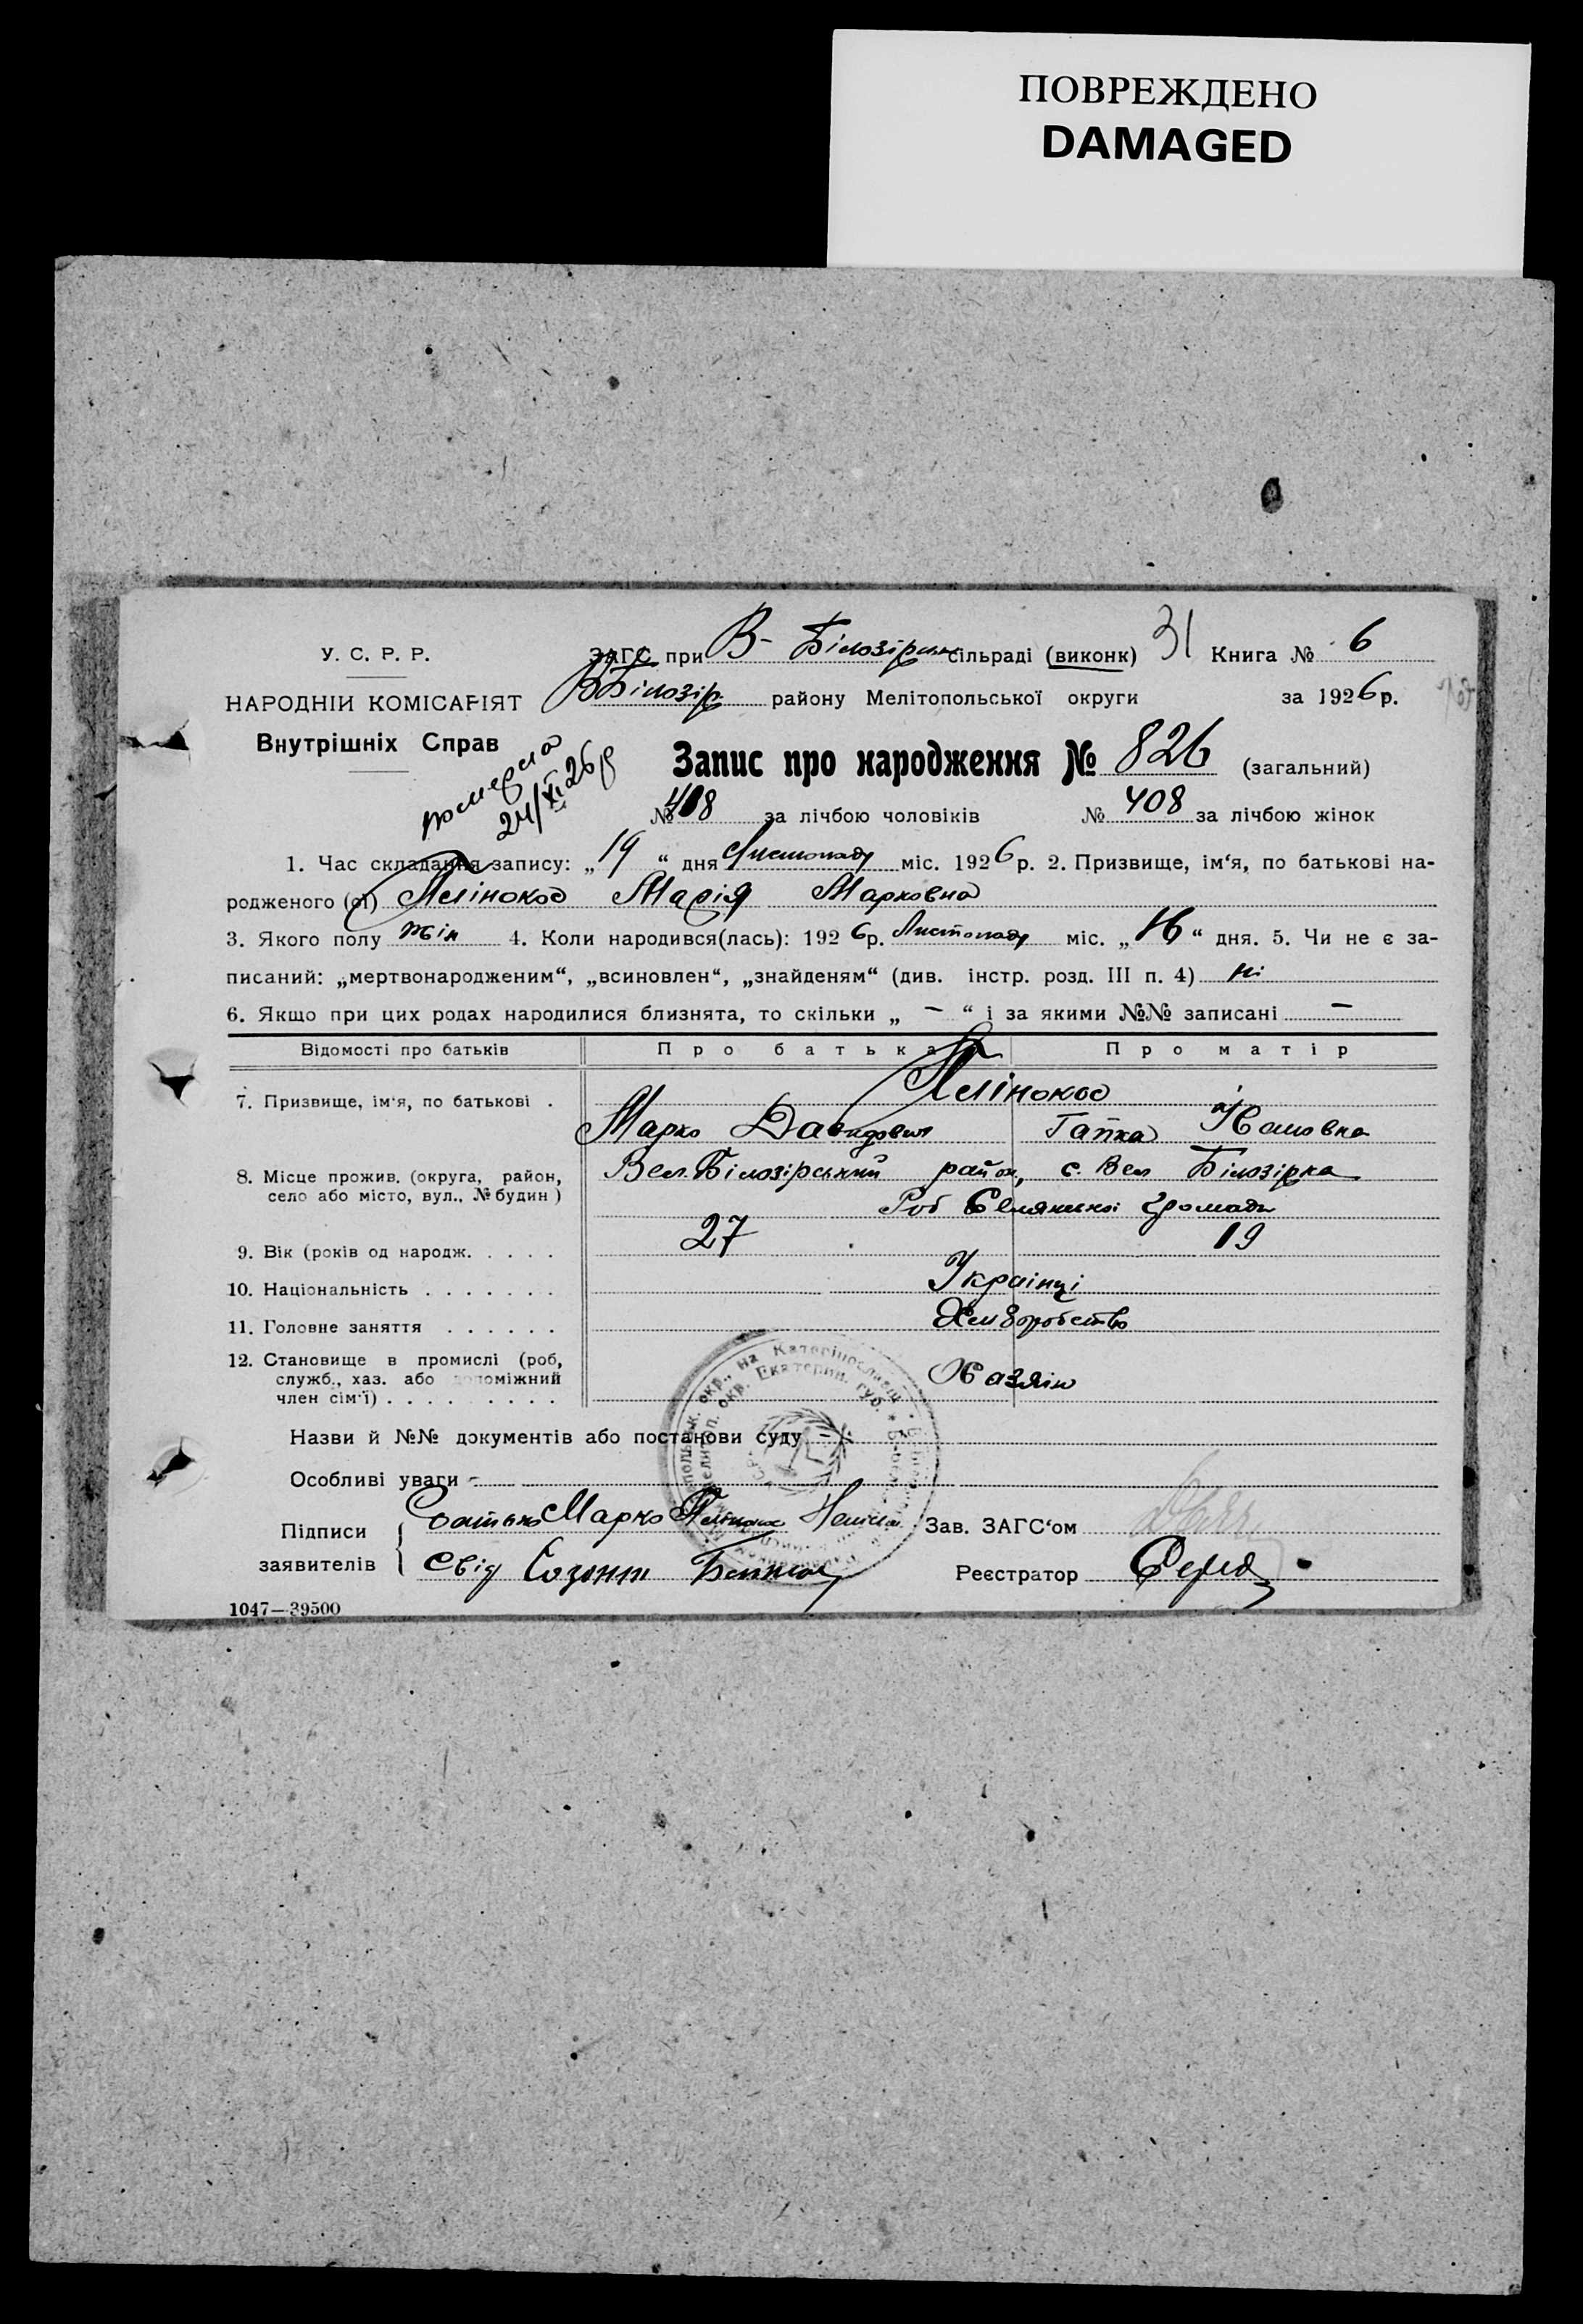 ПОВРЕЖДЕНО
DAMAGED
У. С. Р. Р.
ЗАГС при В-Білозірськ сільраді (виконк) 31 Книга № 6
НАРОДНІЙ КОМІСАРІЯТ
ВБілозір. району Мелітопольської округи за 1926 р.
Внутрішніх Справ
померла 24/XI 26 р
Запис про народження № 826 (загальний)
№ 408 за лічбою чоловіків № 408 за лічбою жінок
1. Час складання запису: „19“ дня Листопаду міс. 1926 р. 2. Призвище, ім‘я, по батькові на-
родженого (ої) Марія Марковна
3. Якого полу жін 4. Коли народився(лась): 1926 р. Листопаду міс. „16“ дня. 5. Чи не є за-
писаний: „мертвонародженим“, „всиновлен“, „знайденям“ (див. інстр. розд. III п. 4) ні
6. Якщо при цих родах народилися близнята, то скільки „ – “ і за якими №№ записані –
Відомості про батьків Про батька Про матір
7. Призвище, ім‘я, по батькові .
Марко Давидович Гапка
8. Місце прожив. (округа, район, село або місто, вул., № будин)
Вел. Білозірський район, с. Вел Білозірка
громади
9. Вік (років од народж. . . . . 27 19
10. Національність . . . . . . . Українці
11. Головне заняття . . . . . . Хліборобство
12. Становище в промислі (роб, служб., хаз. або допоміжний член сім‘ї) . . . . . . . . . Хазяін
Назви й №№ документів або постанови суду -
Особливі уваги -
Підписи заявителів
батько Марко
свід Созонт
Зав. ЗАГС‘ом
Реєстратор
1047—39500